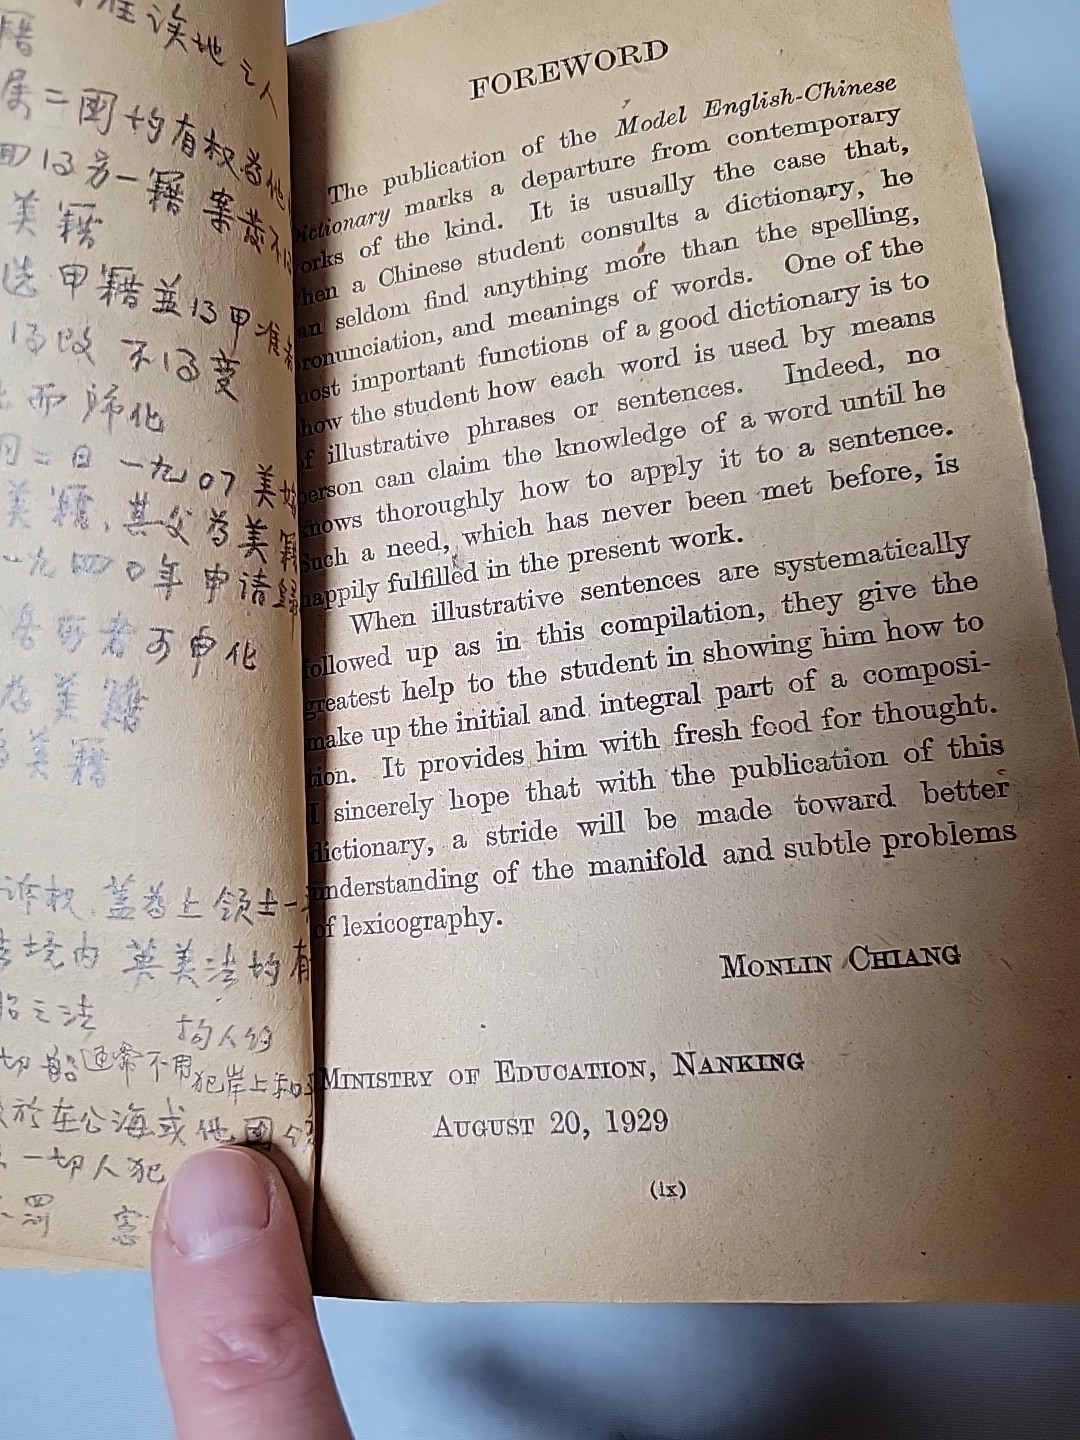 准该地之人
籍
二國均有权為他
13另一籍 案
美籍
选甲籍並13甲准
13改 不13变
而归化
二日 一九07美
美籍,其父為美籍
一九四0年申请
者可申化
為美籍
美籍
诉权 蓋為上领土一
境内 英美法均有
之法 拘人的
切船通常不用犯岸上
於在公海或他國
一切人犯
罰
FOREWORD
The publication of the Model English-Chinese
ictionary marks a departure from contemporary
orks of the kind. It is usually the case that,
hen a Chinese student consults a dictionary, he
an seldom find anything more than the spelling,
ronunciation, and meanings of words. One of the
nost important functions of a good dictionary is to
how the student how each word is used by means
f illustrative phrases or sentences. Indeed, no
person can claim the knowledge of a word until he
nows thoroughly how to apply it to a sentence.
Such a need, which has never been met before, is
happily fulfilled in the present work.
When illustrative sentences are systematically
ollowed up as in this compilation, they give the
greatest help to the student in showing him how to
make up the initial and integral part of a composi-
tion. It provides him with fresh food for thought.
I sincerely hope that with the publication of this
dictionary, a stride will be made toward better
understanding of the manifold and subtle problems
of lexicography.
MONLIN CHIANG
MINISTRY OF EDUCATION, NANKING
AUGUST 20, 1929
(ix)